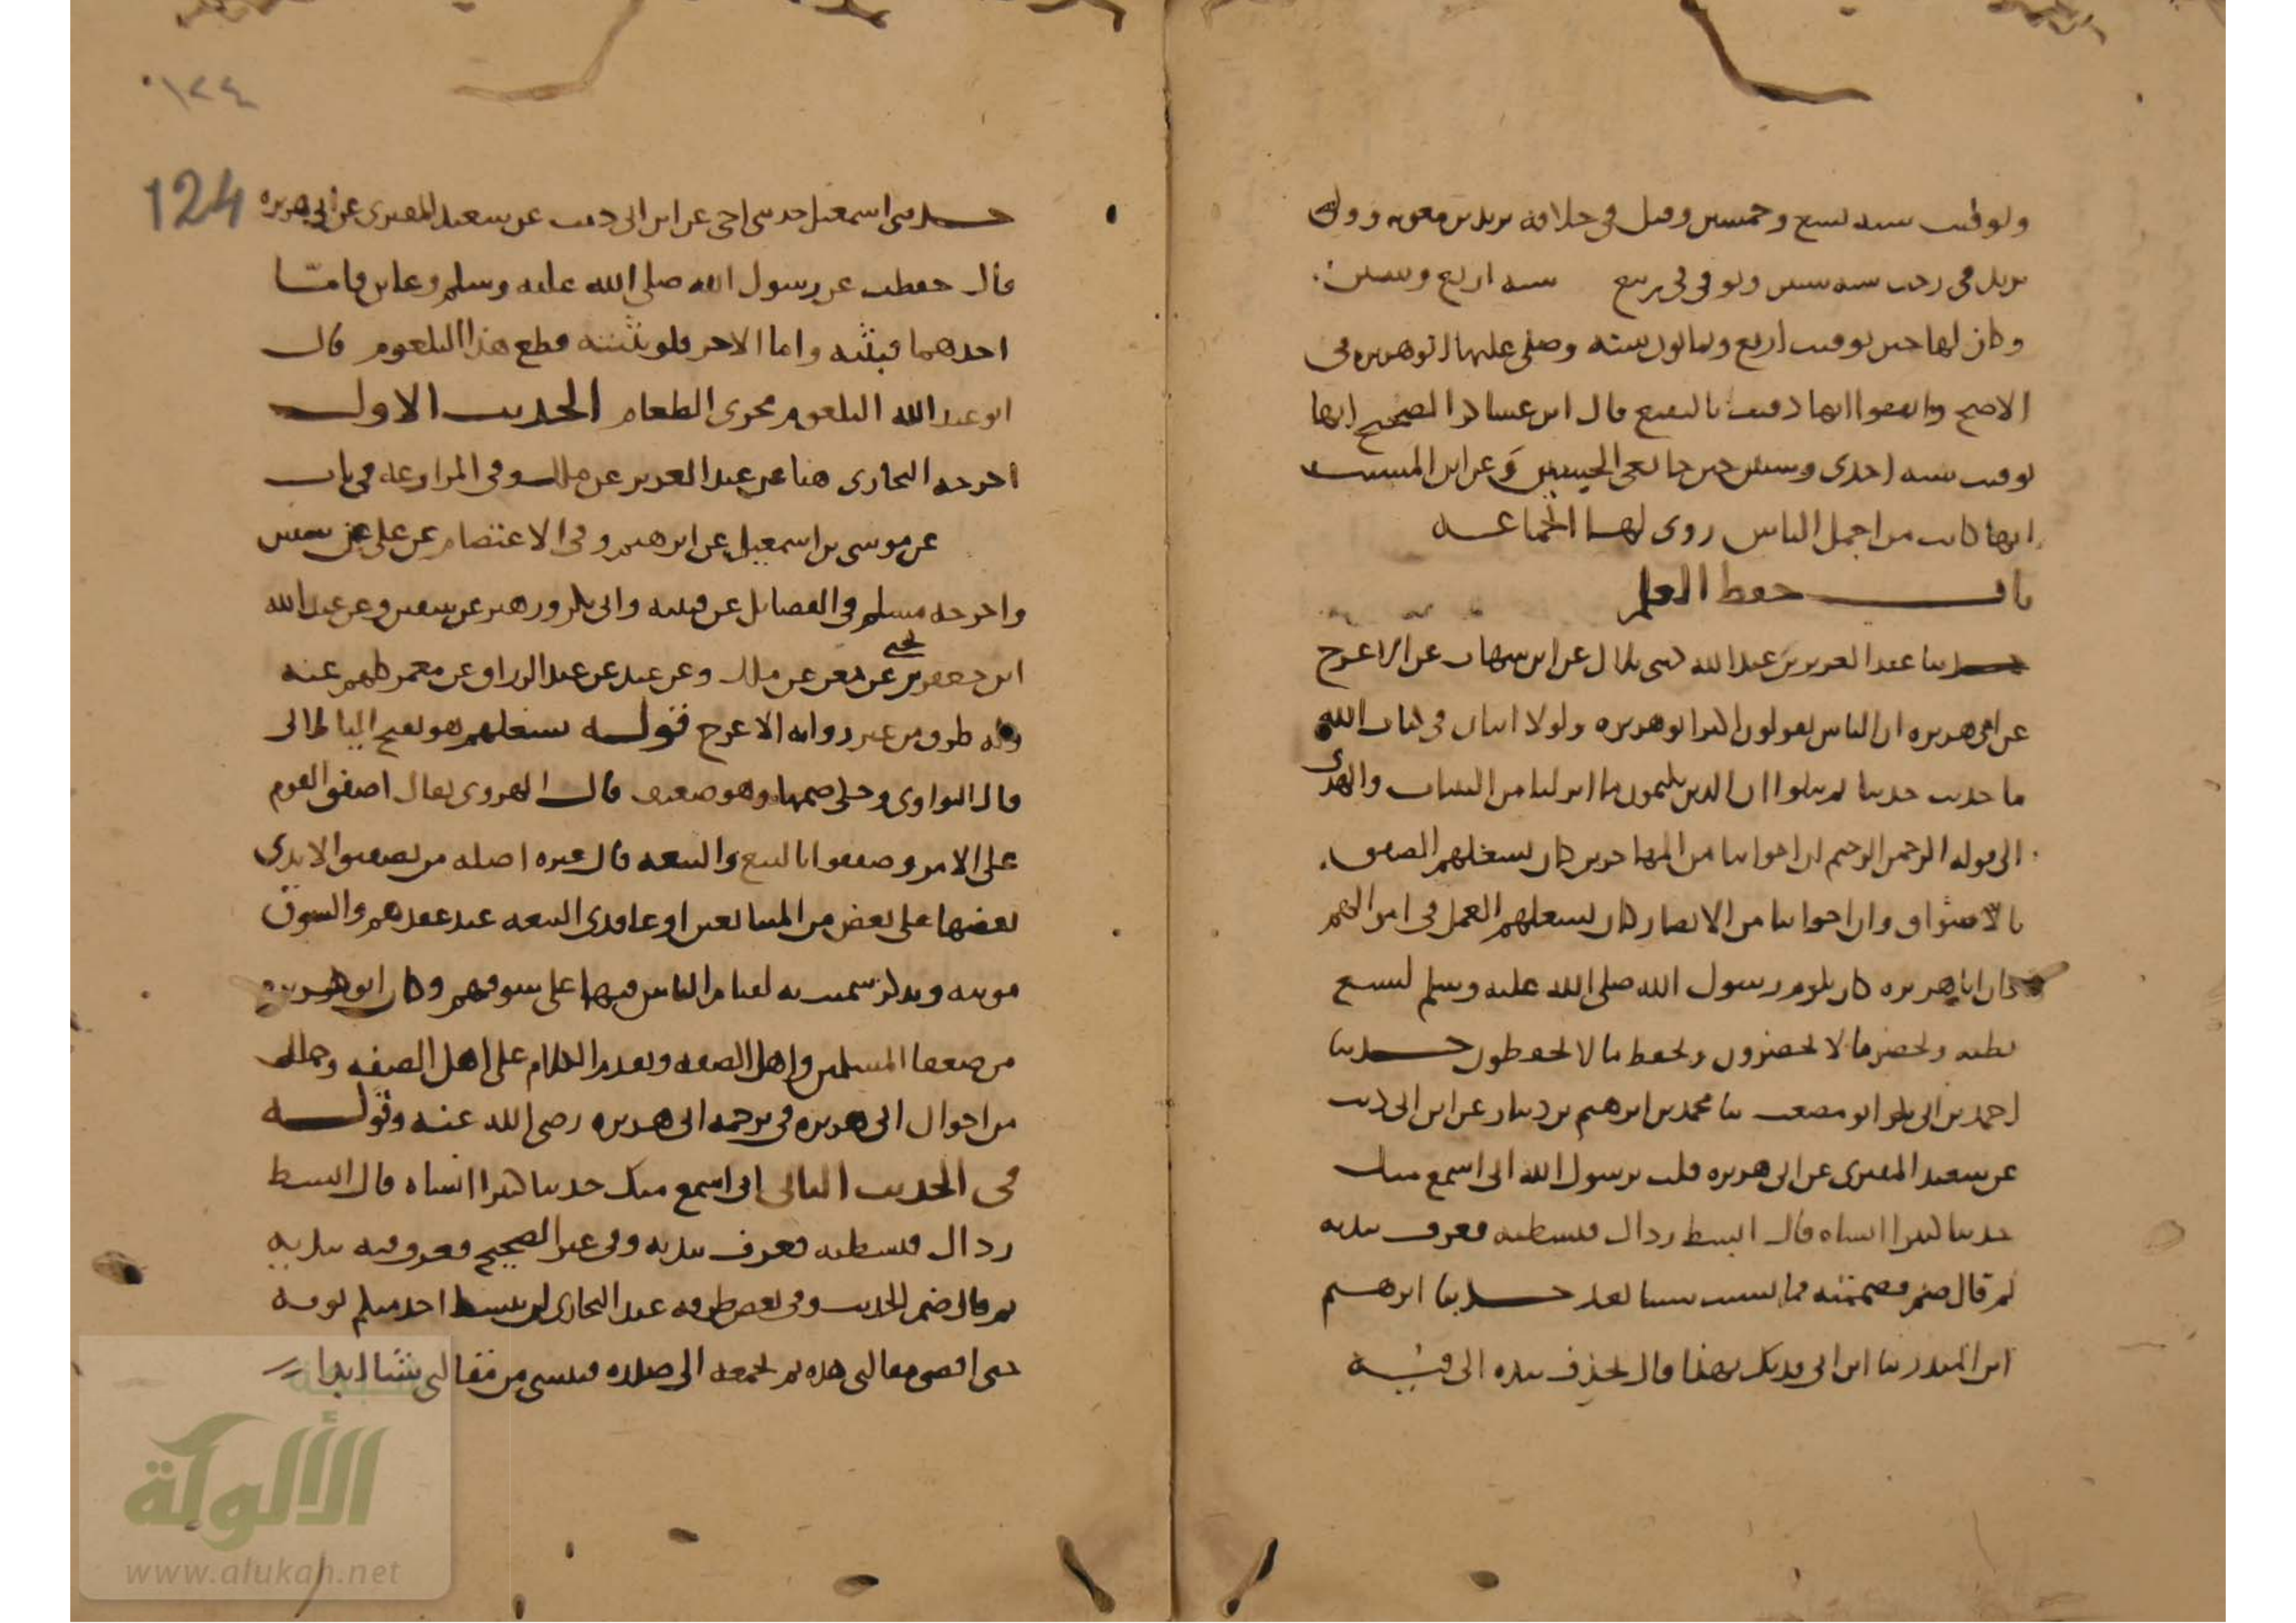 وتوفيت سنه تسع وخمسين وقيل في خلافه يزيد بن معويه وولى
يزيد في رجب سنه ستين وتوفي في ربيع سنه اربع وستين
وكان لها حين توفيت اربع وثمانون سنة وصلى عليها ابو هريره في
الاصح واتفقوا انها دفنت بالبقيع قال ابن عساكر الصحيح انها
توفيت سنه احدى وستين حين جا نعي الحسين وعن ابن المسيب
انها كانت من اجمل الناس روى لها الجماعه
باب حفظ العلم
حدثنا عبد العزيز بن عبد الله حدثني مالك عن ابن شهاب عن الاعرج
عن ابي هريره ان الناس يقولون اكثر ابو هريره ولولا ايتان في كتاب الله
ما حدثت حديثا ثم يتلوا ان الذين يكتمون ما انزلنا من البينات والهدى
الى قوله الرحمن الرحيم ان اخواننا من المهاجرين كان يشغلهم الصفق
بالاسواق وان اخواننا من الانصار كان يشغلهم العمل في اموالهم
وان ابا هريره كان يلزم رسول الله صلى الله عليه وسلم لشبع
بطنه ويحضر ما لا يحضرون ويحفظ ما لا يحفظون حدثنا
احمد بن ابي بكر ابو مصعب ثنا محمد بن ابرهيم بن دينار عن ابن ابي ذيب
عن سعيد المقبري عن ابي هريره قلت يرسول الله اني اسمع منك
حديثا كثيرا انساه قال ابسط رداك فبسطته فغرف بيديه
ثم قال ضم فضممته فما نسيت شيئا بعد حدثنا ابرهيم
ابن المنذر ثنا ابن ابي فديك بهذا وقال يحذف بيده الى فيه
124
١٢٤
حدثني اسمعيل حدثني اخي عن ابن ابي ذيب عن سعيد المقبري عن ابي هريره
قال حفظت عن رسول الله صلى الله عليه وسلم وعاين فاما
احدهما فبثثته واما الاخر فلو بثثته قطع هذا البلعوم قال
ابو عبد الله البلعوم مجرى الطعام الحديث الاول
اخرجه البخاري هنا عن عبد العزيز عن ملك وفي المزارعه في باب
عن موسى بن اسمعيل عن ابرهيم وفي الاعتصام عن علي عن سفين
واخرجه مسلم في الفضايل عن قتيبه وابي بكر وزهير عن سفين وعن عبد الله
ابن جعفر بن يحيى عن معن عن ملك وعن عبد عن عبد الرزاق عن معمر كلهم عنه
وله طرق من غير روايه الاعرج قوله يشغلهم هو بفتح اليا
قال النواوي وحكي ضمها وهو ضعيف قال الهروي يقال اصفق القوم
على الامر وصفقوا بالبيع والبيعه قال غيره اصله من تصفيق الايدي
بعضها على بعض من المتبايعين او عاقدي البيعه عند عقدهم والسوق
مونثه وتذكر سميت به لقيام الناس فيها على سوقهم وكان ابو هريره
من ضعفا المسلمين واهل الصفه وتقدم الكلام على اهل الصفه وجمله
من احوال ابي هريره في ترجمه ابي هريره رضي الله عنه وقوله
في الحديث الثاني اني اسمع منك حديثا كثيرا انساه قال ابسط
رداك فبسطته فغرف بيديه وفي غير الصحيح فغرف فيه بيديه
ثم قال ضم الحديث وفي بعض طرقه عند البخاري لن يبسط احد منكم ثوبه
حتى اقضي مقالتي هذه ثم يجمعه الى صدره فينسى من مقالتي شيا ابدا
الألوكة
www.alukah.net